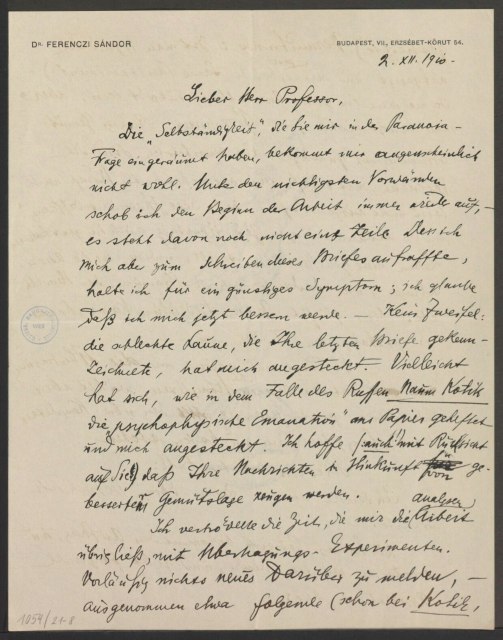 Dr. FERENCZI SÁNDOR
BUDAPEST, VII., ERZSÉBET-KÖRUT 54.
2. XII. 1910.
Lieber Herr Professor,
Die „Selbständigkeit", die Sie mir in der Paranoia-
Frage eingeräumt haben, bekommt mir augenscheinlich
nicht wohl. Unter den nichtigsten Vorwänden
schob ich den Beginn der Arbeit immer wieder auf, –
es steht davon noch nicht eine Zeile. Dass ich
mich aber zum Schreiben dieses Briefes aufraffte,
halte ich für ein günstiges Symptom; ich glaube
daß ich mich jetzt bessern werde. – Kein Zweifel:
die schlechte Laune, die Ihre letzten Briefe gekenn-
zeichnete, hat mich angesteckt. Vielleicht
hat sich, wie in dem Falle des Russen Naum Kotik
die „psychophysische Emanation" ans Papier geheftet
und mich angesteckt. Ich hoffe (auch mit Rücksicht
auf Sie) daß Ihre Nachrichten in Hinkunft von ge-
besserter Gemütslage zeugen werden.
Ich vertrödelte die Zeit, die mir die Arbeit
übrig ließ, mit Übertragungs-Experimenten.
Vorläufig nichts neues darüber zu melden, –
ausgenommen etwa folgende (schon bei Kotik,
1054/21-8